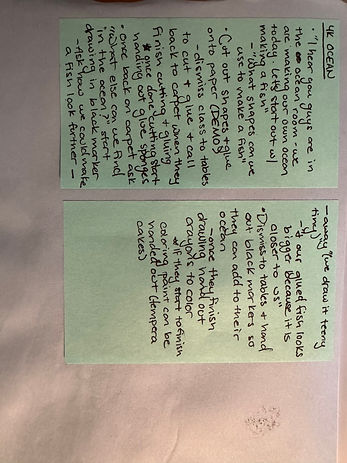 4K OCEAN
• "I hear you guys are in
the ocean room - we
are making our own ocean
today. Let's start out w/
making a fish"
- "What shapes can we
use to make a fish"
• Cut out shapes + glue
onto paper (DEMO)
- dismiss class to tables
to cut + glue + call
back to carpet when they
finish cutting + gluing
* once done cutting start
handing out glue sponges
• once back on carpet ask
"What else can we find
in the ocean?" start
drawing in black marker
- Ask how we could make
a fish look further -
- away (we draw it teeny
tiny)
- If our glued fish looks
bigger because it is
closer to us"
• Dismiss to tables + hand
out black markers so
they can add to their
ocean
- once they finish
drawing hand out
crayons to color
* if they start to finish
coloring paint can be
handed out (tempera
cakes)